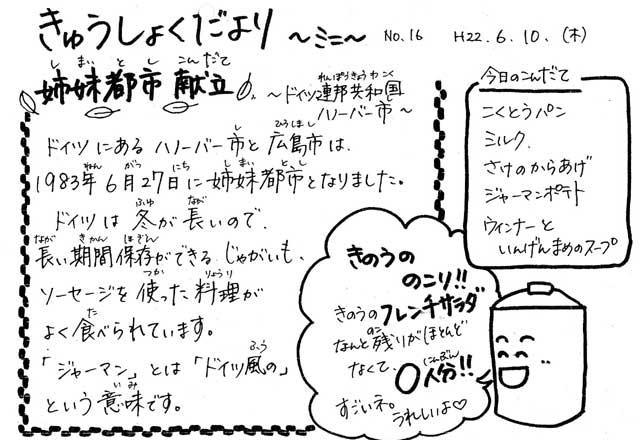 きゅうしょくだより ～ミニ～ No.16 H22.6.10.(木)
姉妹都市献立 ～ドイツ連邦共和国
ハノーバー市～
ドイツにあるハノーバー市と広島市は、
1983年6月27日に姉妹都市となりました。
ドイツは冬が長いので、
長い期間保存ができるじゃがいも、
ソーセージを使った料理が
よく食べられています。
「ジャーマン」とは「ドイツ風の」
という意味です。
今日のこんだて
こくとうパン
ミルク
さけのからあげ
ジャーマンポテト
ウィンナーと
いんげんまめのスープ
きのうの
のこり!!
きのうのフレンチサラダ
なんと残りがほとんど
なくて、
0人分!!
すごいネ。
うれしいよ♡